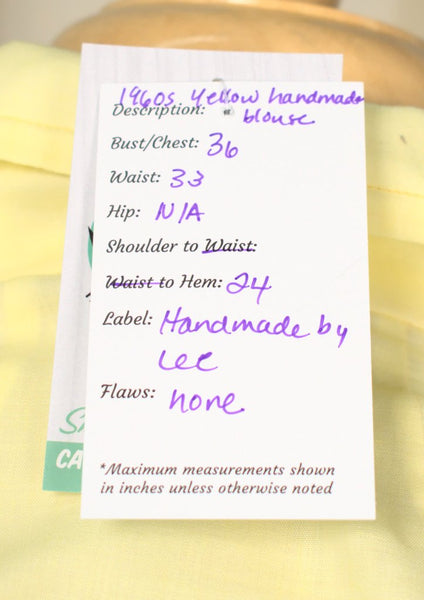 1960s Yellow handmade
Description: blouse
Bust/Chest: 36
Waist: 33
Hip: N/A
Shoulder to Waist:
Waist to Hem: 24
Label: Handmade by
Lee
Flaws: none
*Maximum measurements shown
in inches unless otherwise noted
CA